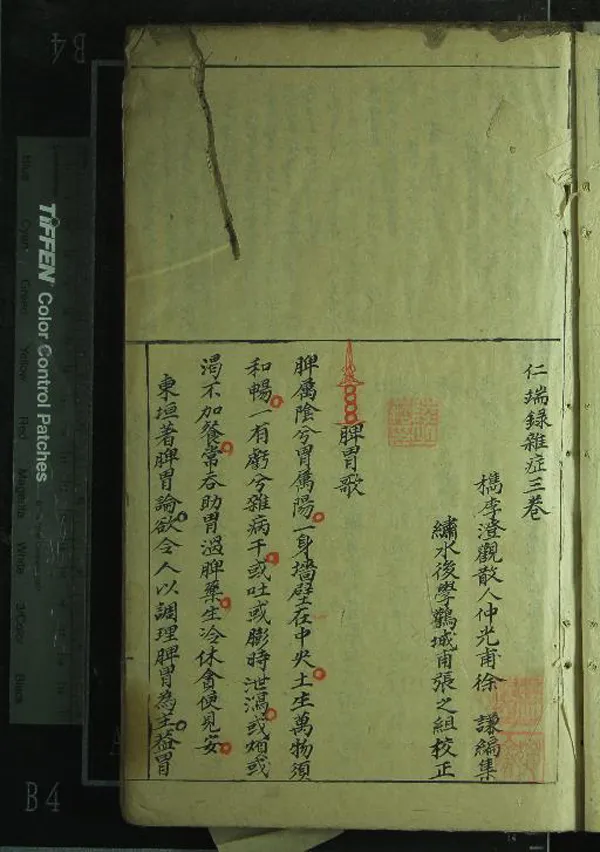 仁瑞録雜症三卷
檇李澄觀散人仲光甫徐 謙編集
繡水後學鶴城甫張之組校正
脾胃歌
脾屬陰兮胃屬陽一身墻壁在中央土生萬物須
和暢一有虧兮雜病干或吐或膨時泄瀉或如或
渴不加餐常吞助胃溫脾藥生冷休貪便見安
東垣著脾胃論欲令人以調理脾胃為主益胃
TIFFEN Color Control Patches
Blue
Cyan
Green
Yellow
Red
Magenta
White
3/Color
Black
B4
B4